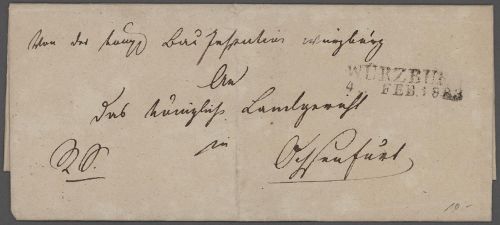 Von der königl Bau Inspection Würzburg
An
WÜRZBURG
4 FEB. 1823
Das königliche Landgericht
R.S.
in
Ochsenfurt
10.-